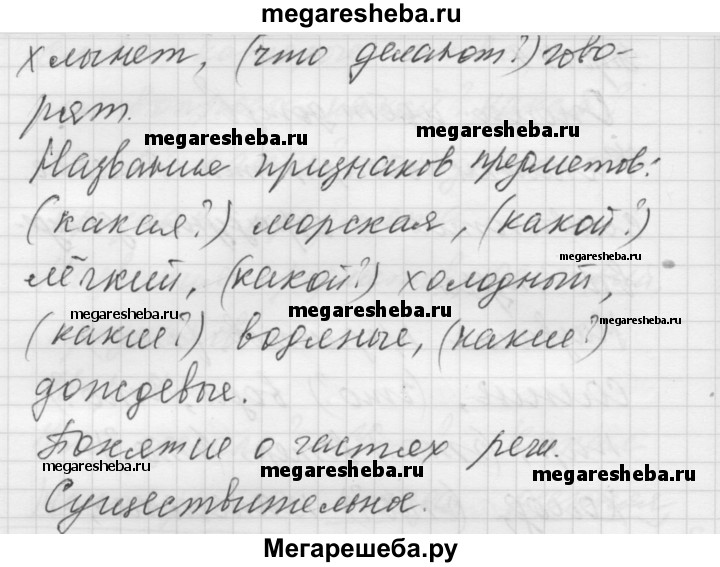 megaresheba.ru
хлынет, (что делают?) гово-
рят.
megaresheba.ru
megaresheba.ru
Название признаков предметов:
(какая?) морская, (какой?)
megaresheba.ru
лёгкий, (какой?) холодный,
megaresheba.ru
megaresheba.ru
megaresheba.ru
(какие?) водяные, (какие?)
дождевые.
Понятие о частях речи.
megaresheba.ru
megaresheba.ru
megaresheba.ru
Существительное.
Мегарешеба.ру